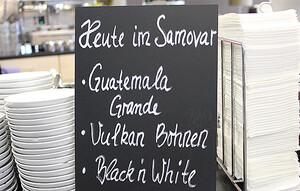 Heute im Samovar
• Guatemala
Grande
• Vulkan Bohnen
• Black'n White